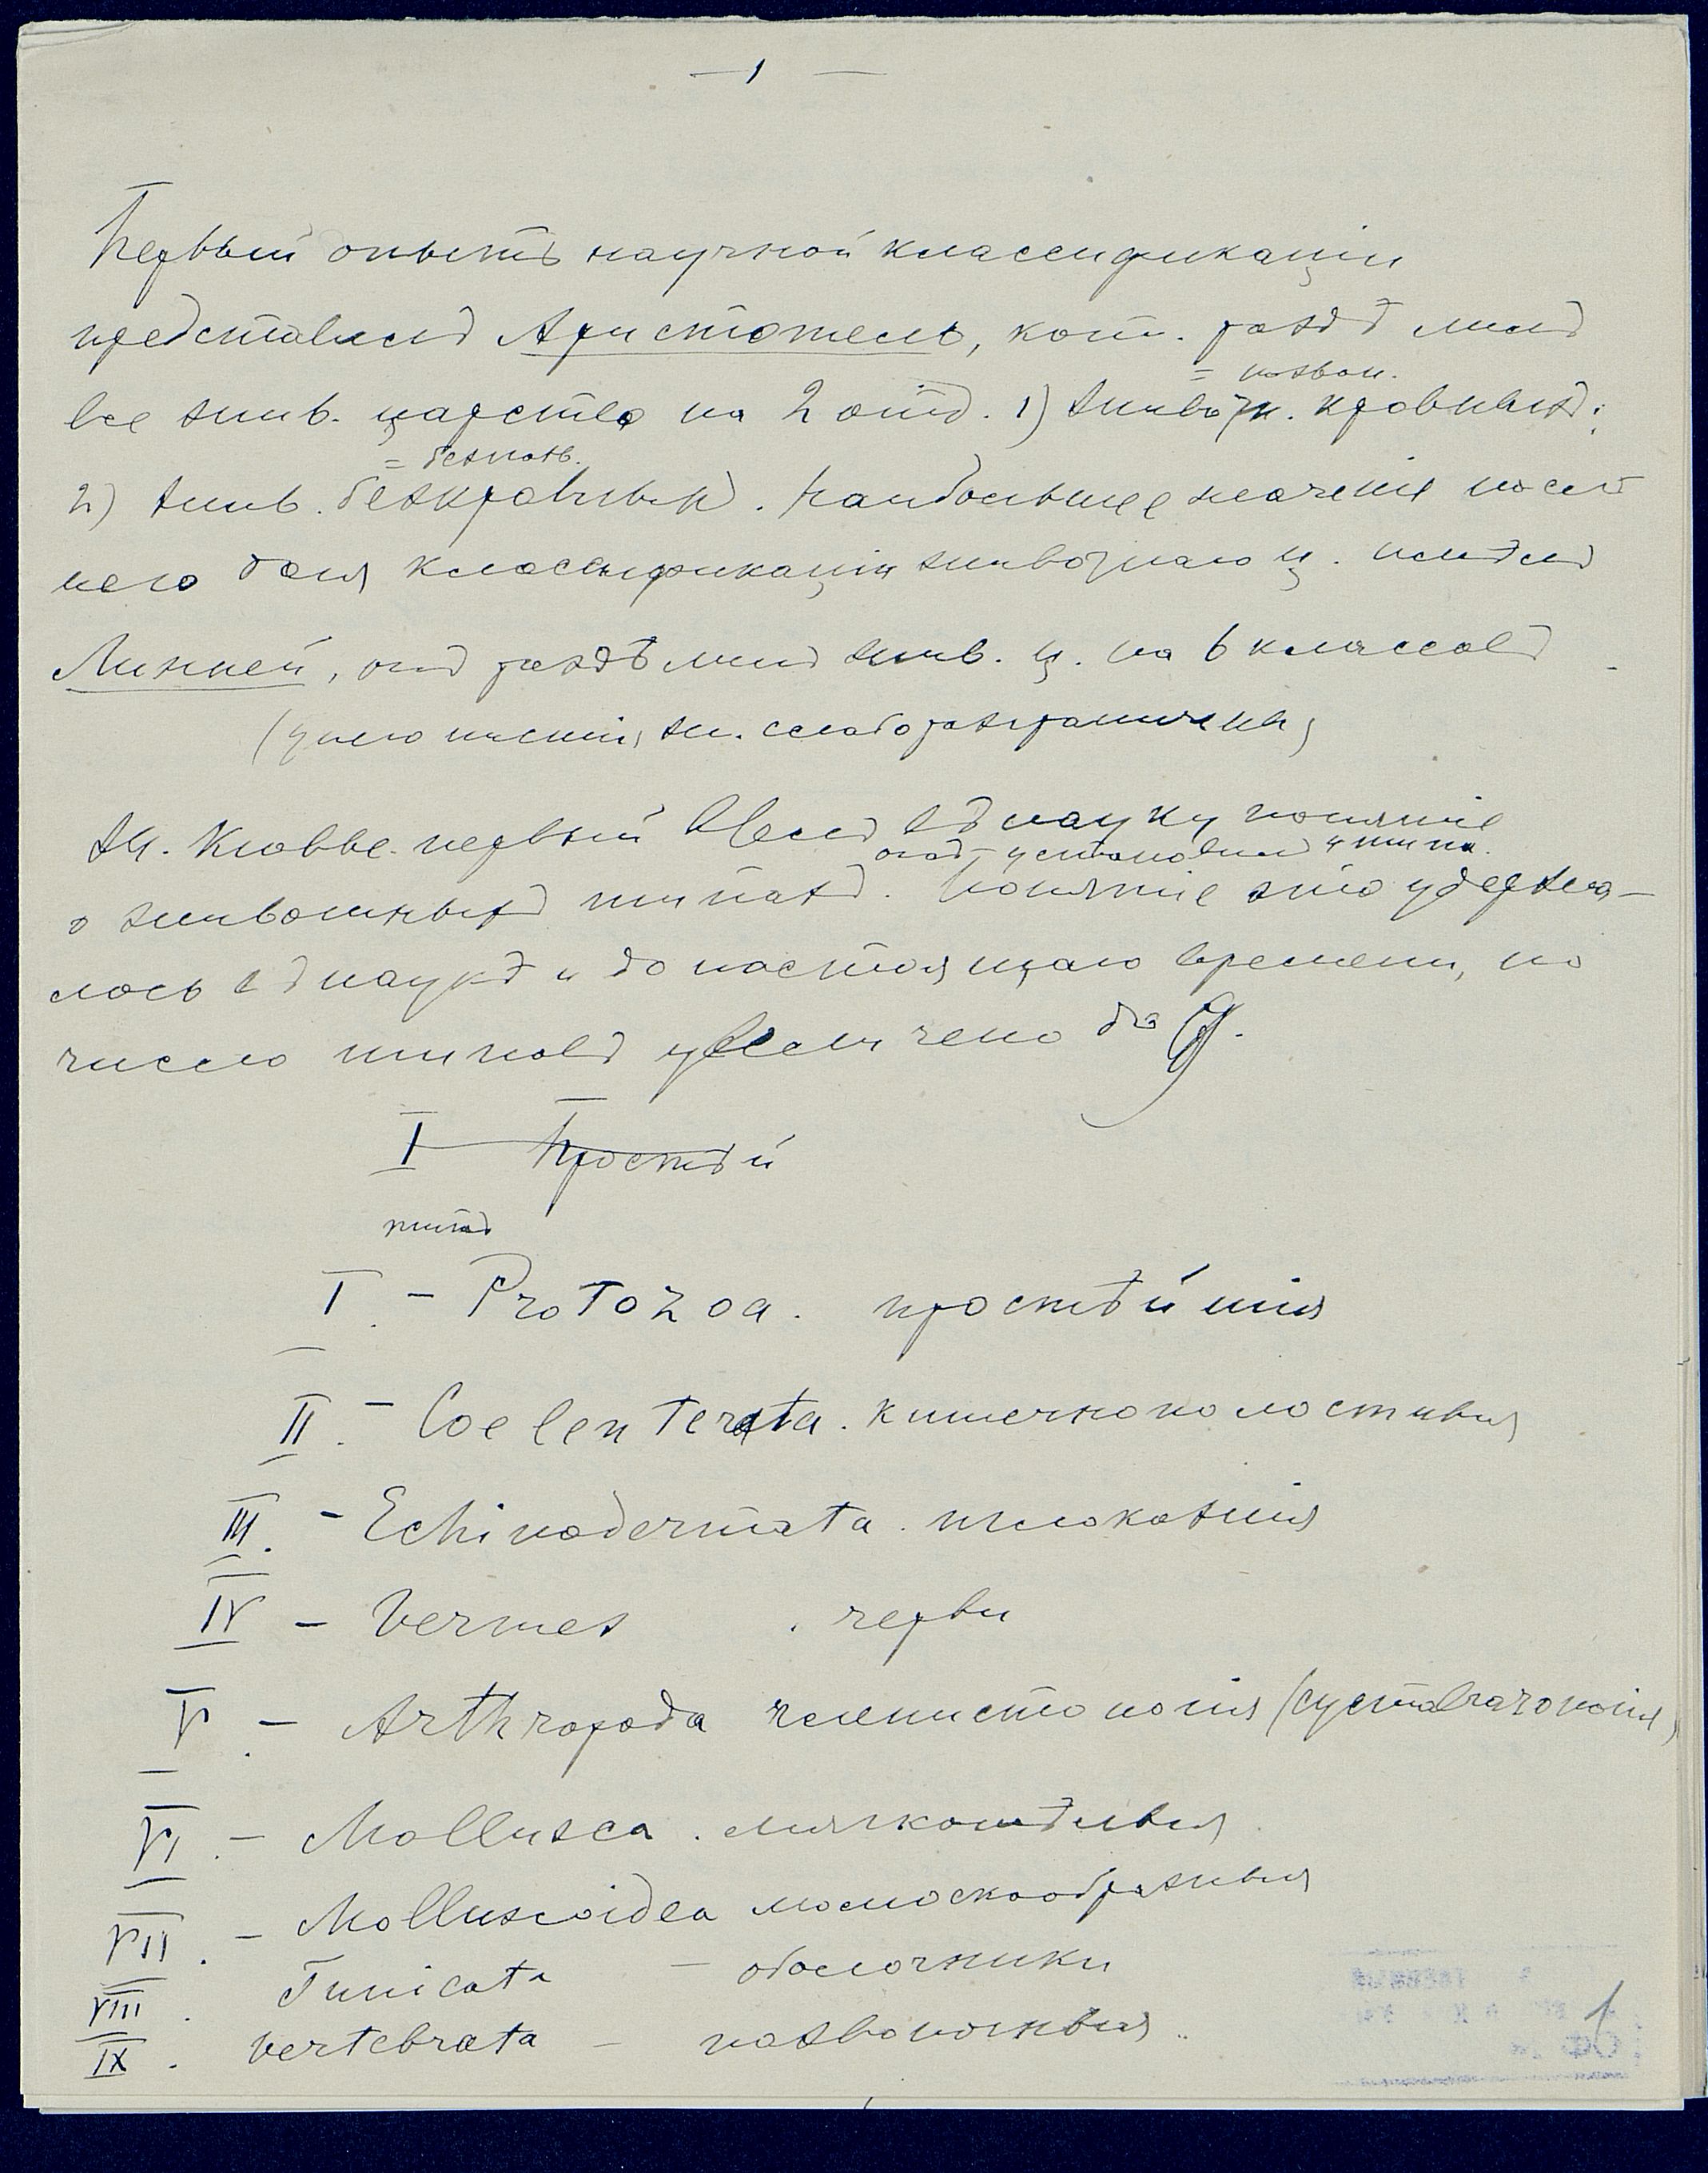 — 1 —
Первый опытъ научной классификаціи
представилъ Аристотель, кот. раздѣлилъ
= позвон.
все жив. царство на 2 отд. 1) животн. кровныхъ;
= безпозв.
2) жив. безкровныхъ. Наибольшее значеніе послѣ
него для классификаціи животнаго ц. имѣлъ
Линней, онъ раздѣлилъ жив. ц. на 6 классовъ
(у него
Ж. Кювье первый ввелъ въ науку понятіе
онъ установилъ 4 типа.
о животныхъ типахъ. Понятіе это удержа-
лось въ наукѣ и до настоящаго времени, но
число типовъ увеличено до 9.
I Простѣй
типъ
I. – Protozoa. простѣйшія
II. – Coelenterata. кишечнополостныя
III. – Echinodermata. иглокожія
IV – Vermes . черви
V. – Arthropoda членистоногія (суставчатоногія)
VI. – Mollusca. мягкотѣлыя
VII. – Molluscoidea молюскообразныя
VIII. Tunicata – оболочники
IX. Vertebrata – позвоночныя.
1